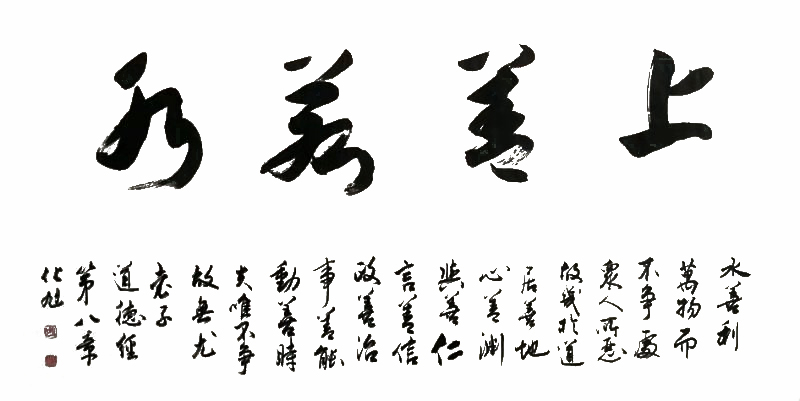 上善若水
水善利
萬物而
不争處
衆人所惡
故幾於道
居善地
心善渊
與善仁
言善信
政善治
事善能
動善時
夫唯不争
故無尤
老子
道德经
第八章
化旭